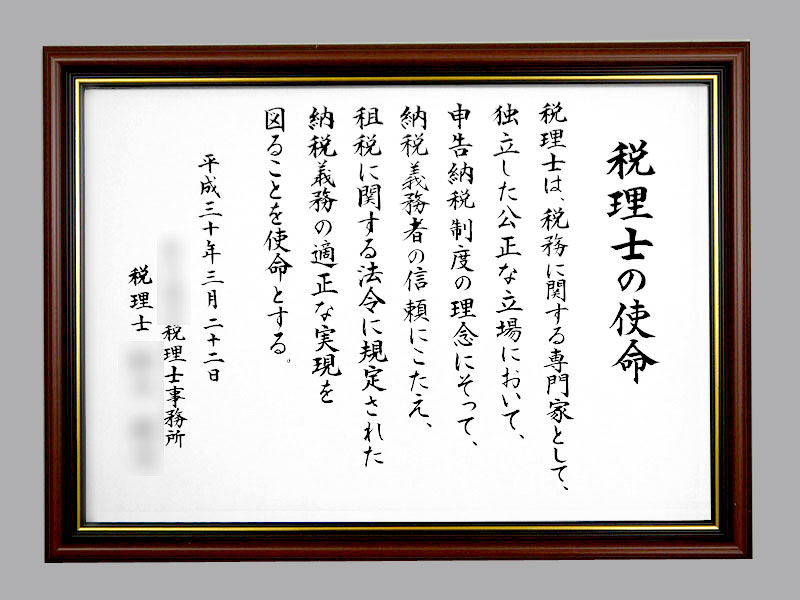 税理士の使命
税理士は、税務に関する専門家として、
独立した公正な立場において、
申告納税制度の理念にそって、
納税義務者の信頼にこたえ、
租税に関する法令に規定された
納税義務の適正な実現を
図ることを使命とする。
平成三十年三月二十二日
税理士事務所
税理士